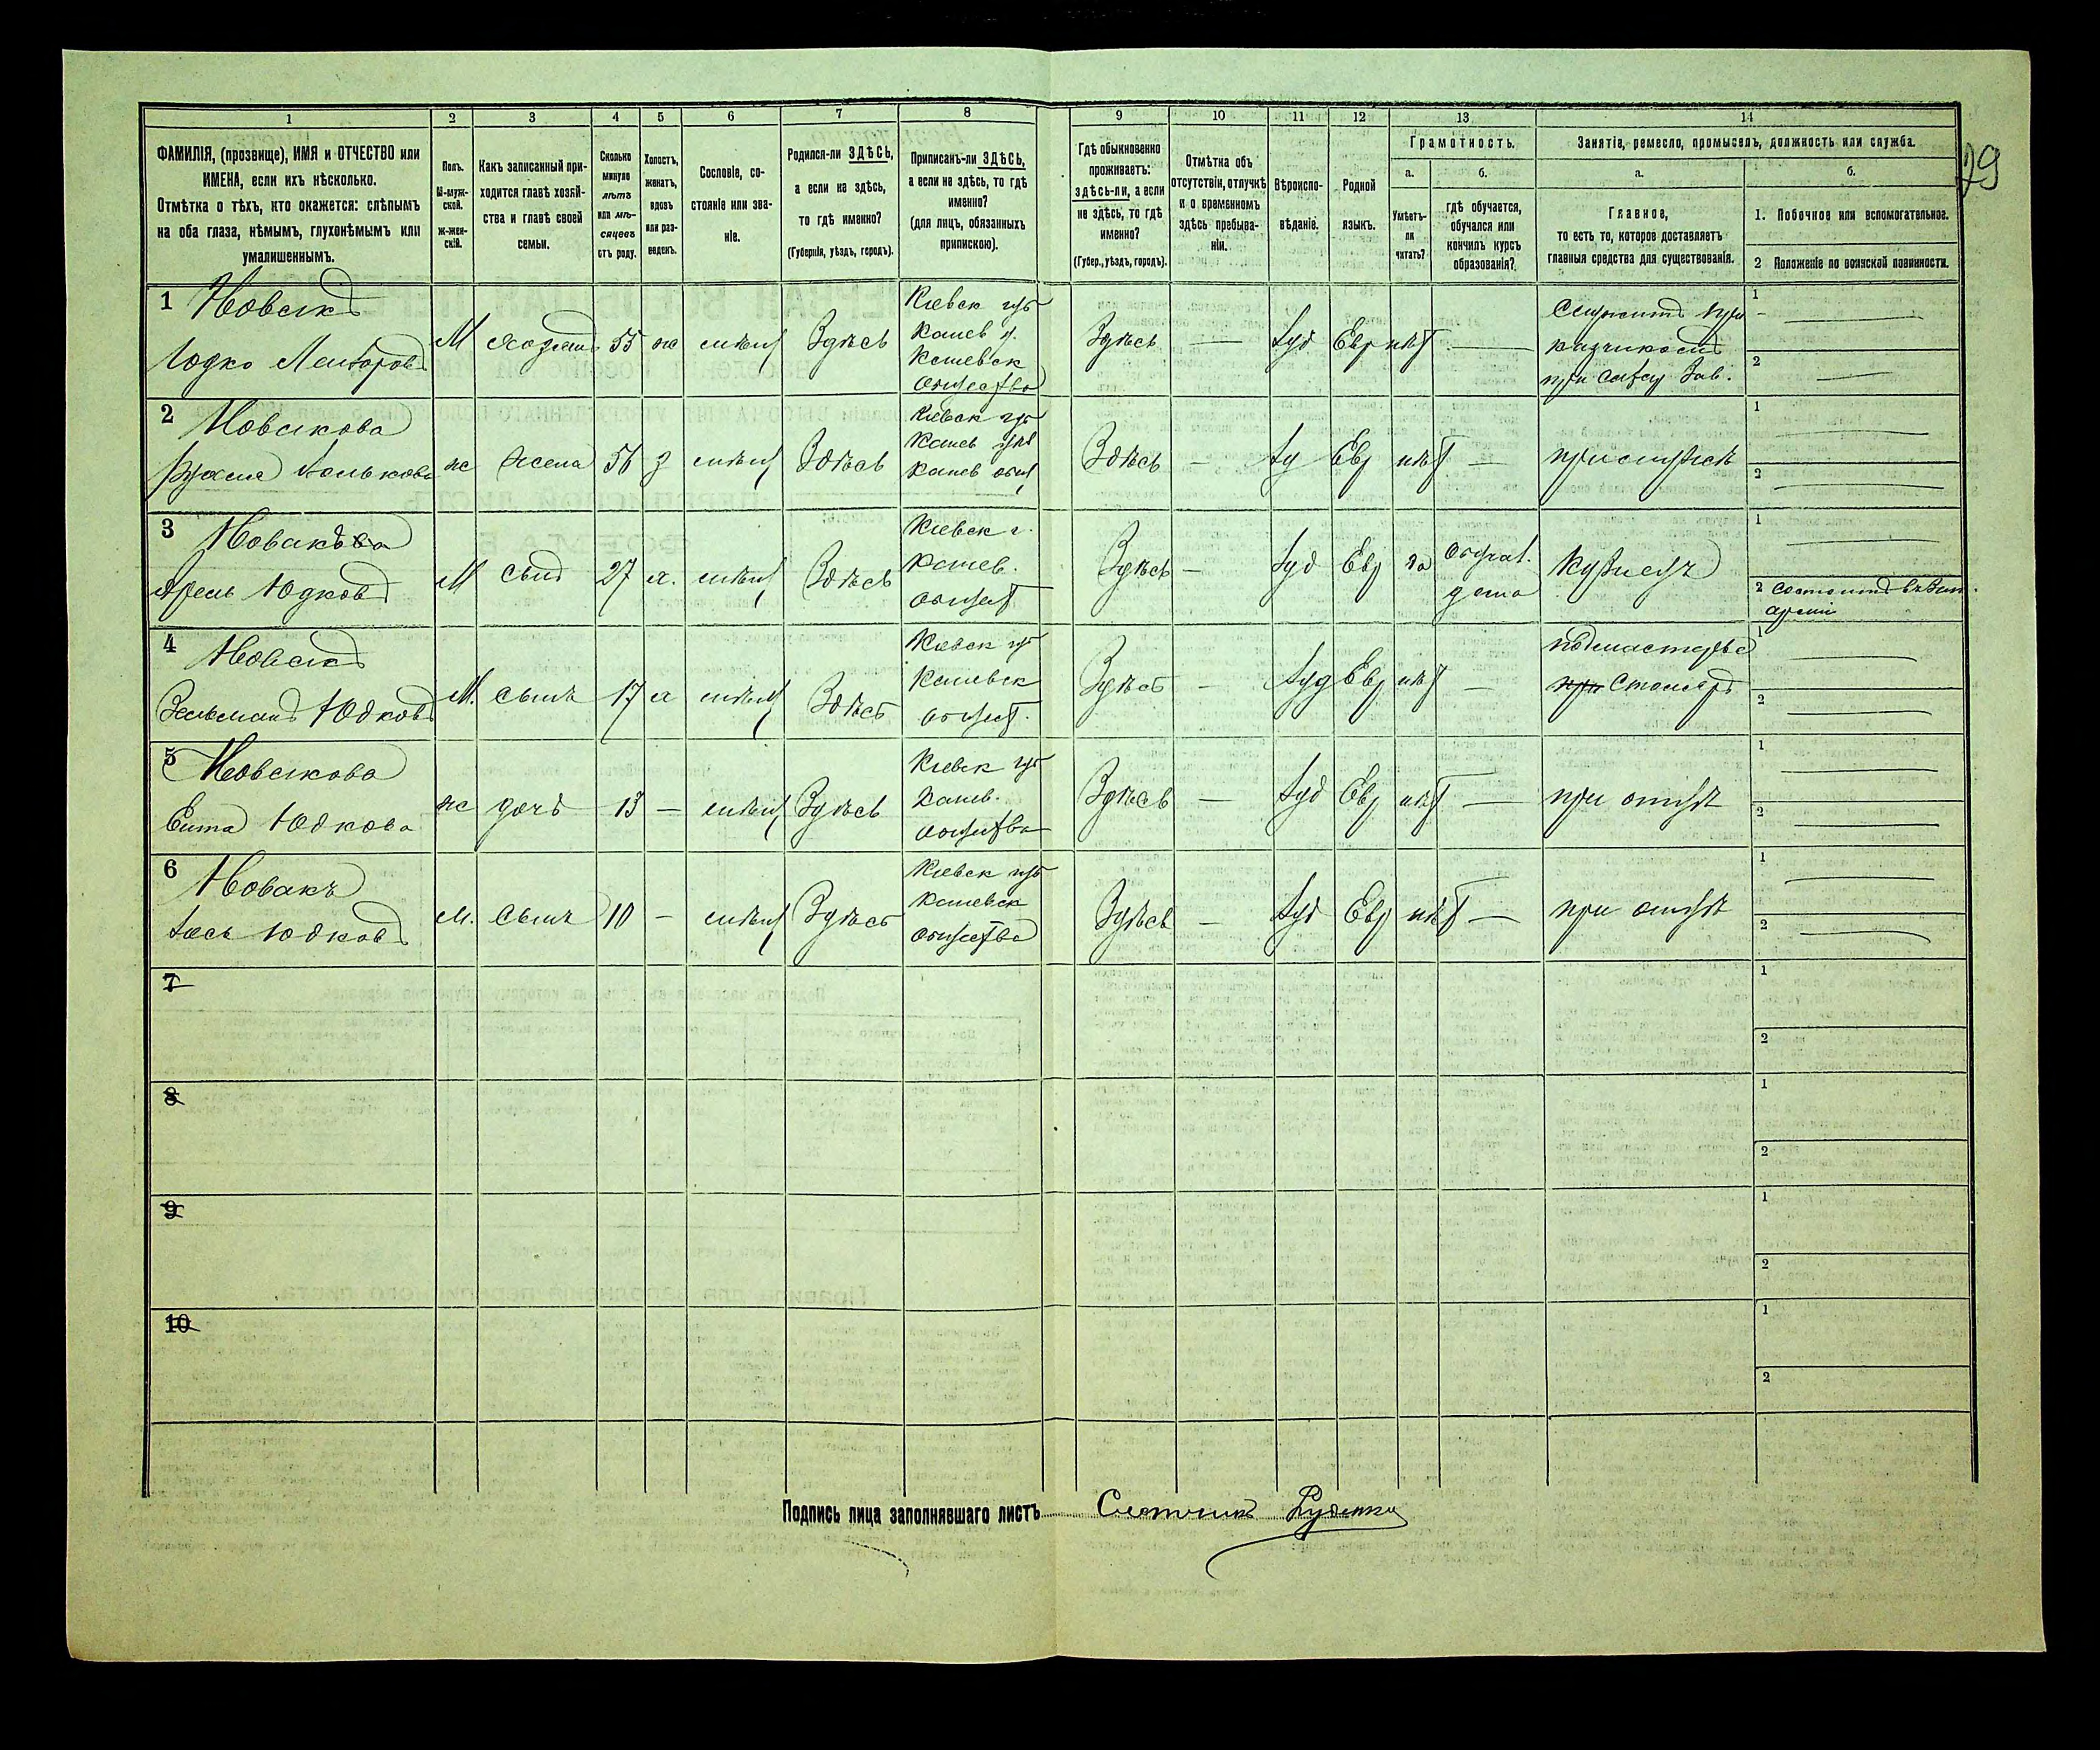 29
1 2 3 4 5 6 7 8 9 10 11 12 13 14
ФАМИЛІЯ, (прозвище), ИМЯ и ОТЧЕСТВО или
ИМЕНА, если ихъ нѣсколько.
Отмѣтка о тѣхъ, кто окажется: слѣпымъ
на оба глаза, нѣмымъ, глухонѣмымъ или
умалишеннымъ.
Полъ.
М-муж-
ской.
ж-жен-
скій.
Какъ записанный при-
ходится главѣ хозяй-
ства и главѣ своей
семьи.
Сколько
минуло
лѣтъ
или мѣ-
сяцевъ
отъ роду.
Холостъ,
женатъ,
вдовъ
или раз-
веденъ.
Сословіе, со-
стояніе или зва-
ніе.
Родился-ли ЗДѢСЬ,
а если не здѣсь,
то гдѣ именно?
(Губернія, уѣздъ, городъ).
Приписанъ-ли ЗДѢСЬ,
а если не здѣсь, то гдѣ
именно?
(для лицъ, обязанныхъ
припискою).
Гдѣ обыкновенно
проживаетъ:
здѣсь-ли, а если
не здѣсь, то гдѣ
именно?
(Губер., уѣздъ, городъ).
Отмѣтка объ
отсутствіи, отлучкѣ
и о временномъ
здѣсь пребыва-
ніи.
Вѣроиспо-
вѣданіе.
Родной
языкъ.
Грамотность.
а.
Умѣетъ-
ли
читать?
б.
гдѣ обучается,
обучался или
кончилъ курсъ
образованія?
Занятіе, ремесло, промыселъ, должность или служба.
а.
Главное,
то есть то, которое доставляетъ
главныя средства для существованія.
б.
1. Побочное или вспомогательное.
2 Положеніе по воинской повинности.
1 Новакъ
М 55 Здѣсь
Кіевск губ
Канев у.
Каневск
общества
Здѣсь — Іуд Евр нѣт —
1 —
2 —
2 Новакова
ж жена 56 з Здѣсь
Кіевск губ
Канев
Канев общ
Здѣсь — Іу Евр нѣт —
1 —
2 —
3 Новакъ
Юдковъ
М сынъ 27 Здѣсь
Кіевск г.
Канев.
общест
Здѣсь — Іуд Евр да
дома
Кузнецъ
1 —
2 состоитъ
арміи
4 Новакъ
Зельманъ Юдковъ
М. сынъ 17 Здѣсь
Кіевск губ
Каневск
общест.
Здѣсь — Іуд Евр нѣт —
подмастерье
при Столяръ
1 —
2 —
5 Новакова
Юдкова
ж дочь 13 — Здѣсь
Кіевск губ
Канев.
общества
Здѣсь — Іуд Евр нѣт —
при отцѣ
1 —
2 —
6 Новакъ
Юдковъ
м. сынъ 10 — Здѣсь
Кіевск губ
Каневск
общества
Здѣсь — Іуд Евр нѣт —
при отцѣ
1 —
2 —
7 1
2
8 1
2
9 1
2
10 1
2
Подпись лица заполнявшаго листъ Счетчикъ Руденко